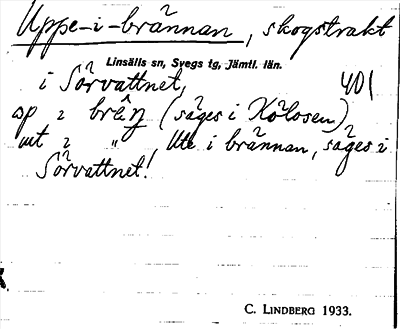 Uppe-i-brännan, skogstrakt
Linsälls sn, Svegs tg, Jämtl. län.
i Sörvattnet, 401
(säges i Kölosen)
" Ute i brännan, säges i
Sörvattnet!
C. LINDBERG 1933.